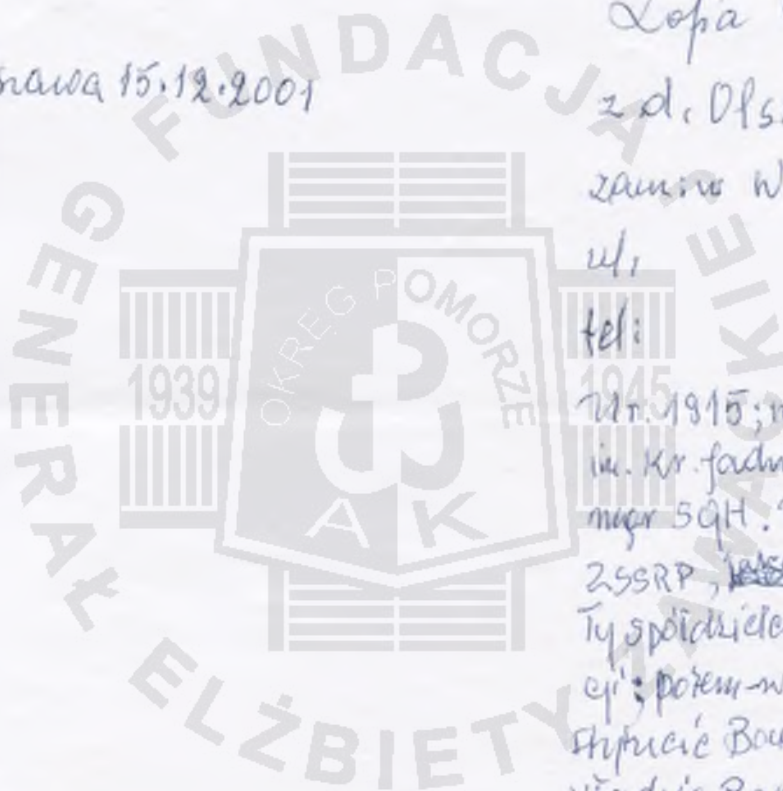 15.12.2001
Zofia
z d. Ols
zam: w W
ul,
tel:
Ur. 1915;
im. Kr. Jadw
mgr SGH.
ZSSRP,
ty spółdziel
cji; potem
stytucie
FUNDACJA
GENERAŁ ELŻBIETY ZAWACKIE
OKRĘG POMORZE
1939
1945
AK